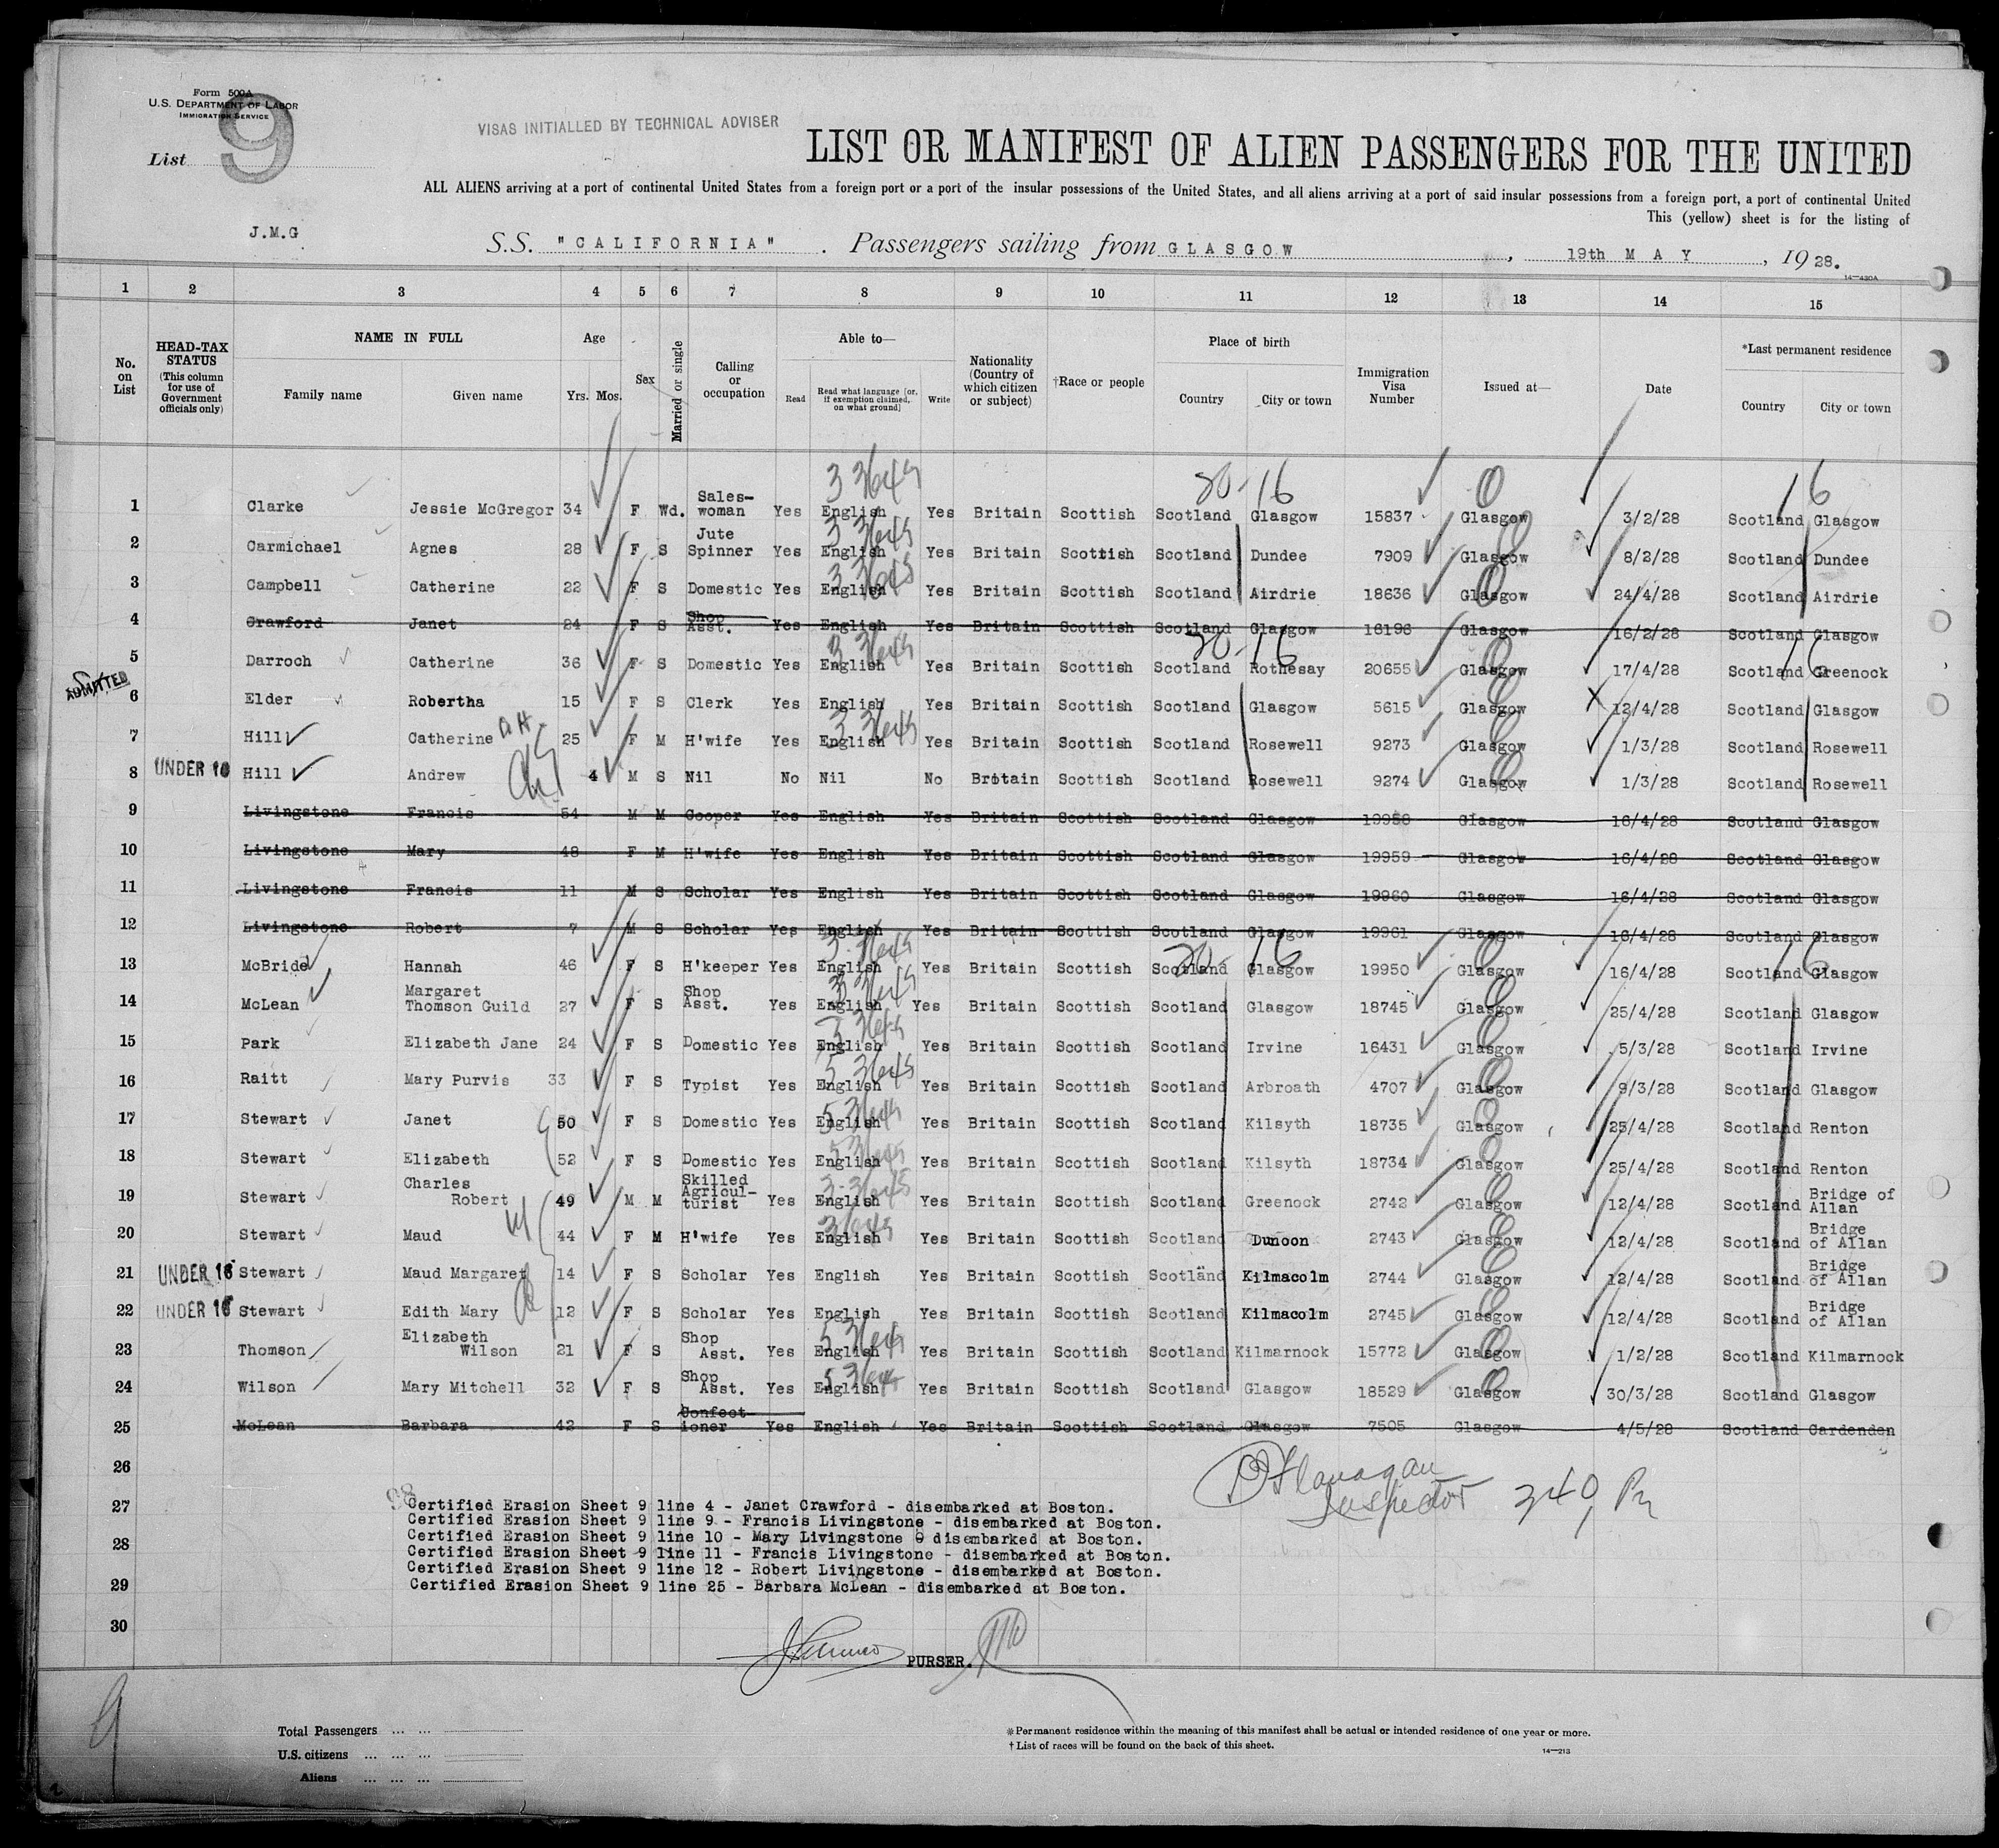 Form 500A
U.S. DEPARTMENT OF LABOR
IMMIGRATION SERVICE
List 9
VISAS INITIALLED BY TECHNICAL ADVISER
LIST OR MANIFEST OF ALIEN PASSENGERS FOR THE UNITED
ALL ALIENS arriving at a port of continental United States from a foreign port or a port of the insular possessions of the United States, and all aliens arriving at a port of said insular possessions from a foreign port, a port of continental United
This (yellow) sheet is for the listing of
J.M.G
S.S. "CALIFORNIA". Passengers sailing from GLASGOW, 19th MAY, 1928.
14—430A
1 2 3 4 5 6 7 8 9 10 11 12 13 14 15
No. on List
HEAD-TAX STATUS (This column for use of Government officials only)
NAME IN FULL
Family name Given name
Age
Yrs. Mos.
Sex
Married or single
Calling or occupation
Able to—
Read
Read what language [or, if exemption claimed, on what ground]
Write
Nationality (Country of which citizen or subject)
†Race or people
Place of birth
Country City or town
Immigration Visa Number
Issued at—
Date
*Last permanent residence
Country City or town
1 Clarke Jessie McGregor 34 F Wd. Sales-woman Yes English Yes Britain Scottish Scotland Glasgow 15837 Glasgow 3/2/28 Scotland Glasgow
2 Carmichael Agnes 28 F S Jute Spinner Yes English Yes Britain Scottish Scotland Dundee 7909 Glasgow 8/2/28 Scotland Dundee
3 Campbell Catherine 22 F S Domestic Yes English Yes Britain Scottish Scotland Airdrie 18636 Glasgow 24/4/28 Scotland Airdrie
4 Crawford Janet 24 F S Shop Asst. Yes English Yes Britain Scottish Scotland Glasgow 16196 Glasgow 16/2/28 Scotland Glasgow
5 Darroch Catherine 36 F S Domestic Yes English Yes Britain Scottish Scotland Rothesay 20655 Glasgow 17/4/28 Scotland Greenock
ADMITTED
6 Elder Robertha 15 F S Clerk Yes English Yes Britain Scottish Scotland Glasgow 5615 Glasgow 12/4/28 Scotland Glasgow
7 Hill Catherine 25 F M H'wife Yes English Yes Britain Scottish Scotland Rosewell 9273 Glasgow 1/3/28 Scotland Rosewell
8 UNDER 16 Hill Andrew 4 M S Nil No Nil No Britain Scottish Scotland Rosewell 9274 Glasgow 1/3/28 Scotland Rosewell
9 Livingstone Francis 54 M M Cooper Yes English Yes Britain Scottish Scotland Glasgow 19958 Glasgow 16/4/28 Scotland Glasgow
10 Livingstone Mary 48 F M H'wife Yes English Yes Britain Scottish Scotland Glasgow 19959 Glasgow 16/4/28 Scotland Glasgow
11 Livingstone Francis 11 M S Scholar Yes English Yes Britain Scottish Scotland Glasgow 19960 Glasgow 16/4/28 Scotland Glasgow
12 Livingstone Robert 7 M S Scholar Yes English Yes Britain Scottish Scotland Glasgow 19961 Glasgow 16/4/28 Scotland Glasgow
13 McBride Hannah 46 F S H'keeper Yes English Yes Britain Scottish Scotland Glasgow 19950 Glasgow 16/4/28 Scotland Glasgow
14 McLean Margaret Thomson Guild 27 F S Shop Asst. Yes English Yes Britain Scottish Scotland Glasgow 18745 Glasgow 25/4/28 Scotland Glasgow
15 Park Elizabeth Jane 24 F S Domestic Yes English Yes Britain Scottish Scotland Irvine 16431 Glasgow 5/3/28 Scotland Irvine
16 Raitt Mary Purvis 33 F S Typist Yes English Yes Britain Scottish Scotland Arbroath 4707 Glasgow 9/3/28 Scotland Glasgow
17 Stewart Janet 50 F S Domestic Yes English Yes Britain Scottish Scotland Kilsyth 18735 Glasgow 25/4/28 Scotland Renton
18 Stewart Elizabeth 52 F S Domestic Yes English Yes Britain Scottish Scotland Kilsyth 18734 Glasgow 25/4/28 Scotland Renton
19 Stewart Charles Robert 49 M M Skilled Agricul-turist Yes English Yes Britain Scottish Scotland Greenock 2742 Glasgow 12/4/28 Scotland Bridge of Allan
20 Stewart Maud 44 F M H'wife Yes English Yes Britain Scottish Scotland Dunoon 2743 Glasgow 12/4/28 Scotland Bridge of Allan
21 UNDER 16 Stewart Maud Margaret 14 F S Scholar Yes English Yes Britain Scottish Scotland Kilmacolm 2744 Glasgow 12/4/28 Scotland Bridge of Allan
22 UNDER 16 Stewart Edith Mary 12 F S Scholar Yes English Yes Britain Scottish Scotland Kilmacolm 2745 Glasgow 12/4/28 Scotland Bridge of Allan
23 Thomson Elizabeth Wilson 21 F S Shop Asst. Yes English Yes Britain Scottish Scotland Kilmarnock 15772 Glasgow 1/2/28 Scotland Kilmarnock
24 Wilson Mary Mitchell 32 F S Shop Asst. Yes English Yes Britain Scottish Scotland Glasgow 18529 Glasgow 30/3/28 Scotland Glasgow
25 McLean Barbara 42 F S Confect-ioner Yes English Yes Britain Scottish Scotland Glasgow 7505 Glasgow 4/5/28 Scotland Cardenden
26
Flanagan
Inspector 340
27 Certified Erasion Sheet 9 line 4 - Janet Crawford - disembarked at Boston.
Certified Erasion Sheet 9 line 9 - Francis Livingstone - disembarked at Boston.
28 Certified Erasion Sheet 9 line 10 - Mary Livingstone 9 disembarked at Boston.
Certified Erasion Sheet 9 line 11 - Francis Livingstone - disembarked at Boston.
Certified Erasion Sheet 9 line 12 - Robert Livingstone - disembarked at Boston.
29 Certified Erasion Sheet 9 line 25 - Barbara McLean - disembarked at Boston.
30
PURSER.
9
Total Passengers ... ...
U.S. citizens ... ... ...
Aliens ... ... ...
*Permanent residence within the meaning of this manifest shall be actual or intended residence of one year or more.
†List of races will be found on the back of this sheet.
14—213